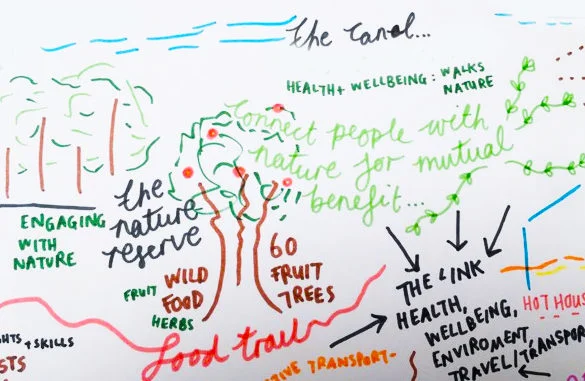 the canal...
HEALTH + WELLBEING: WALKS
NATURE
Connect people with
nature for mutual
benefit...
the
nature
reserve
ENGAGING
WITH
NATURE
FRUIT
WILD
FOOD
HERBS
60
FRUIT
TREES
food trail
THE LINK
HEALTH,
WELLBEING,
ENVIROMENT,
TRAVEL/TRANSPOR
HOT HOUS
+ SKILLS
TRANSPORT-